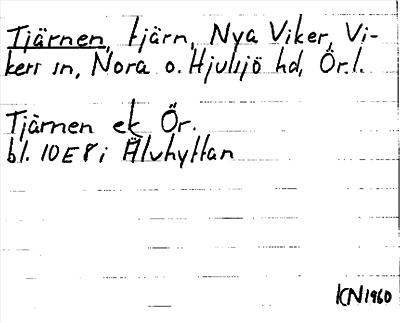 Tjärnen, tjärn, Nya Viker, Vi-
kers sn, Nora o. Hjulsjö hd, Ör. l.
Tjärnen ek Ör.
bl. 10E8i Älvhyttan
KN1960